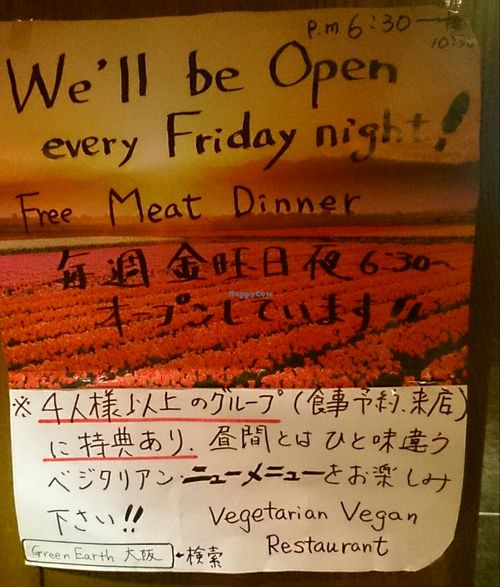 p.m 6:30〜
10:30
We'll be Open
every Friday night!
Free Meat Dinner
毎週金旺日夜6:30〜
オープンしています!!
HappyCow
※4人様以上のグループ(食事予約、来店)
に特典あり、昼間とはひと味違う
ベジタリアン・ニューメニューをお楽しみ
下さい!!
Vegetarian Vegan
Restaurant
Green Earth 大阪 ・検索